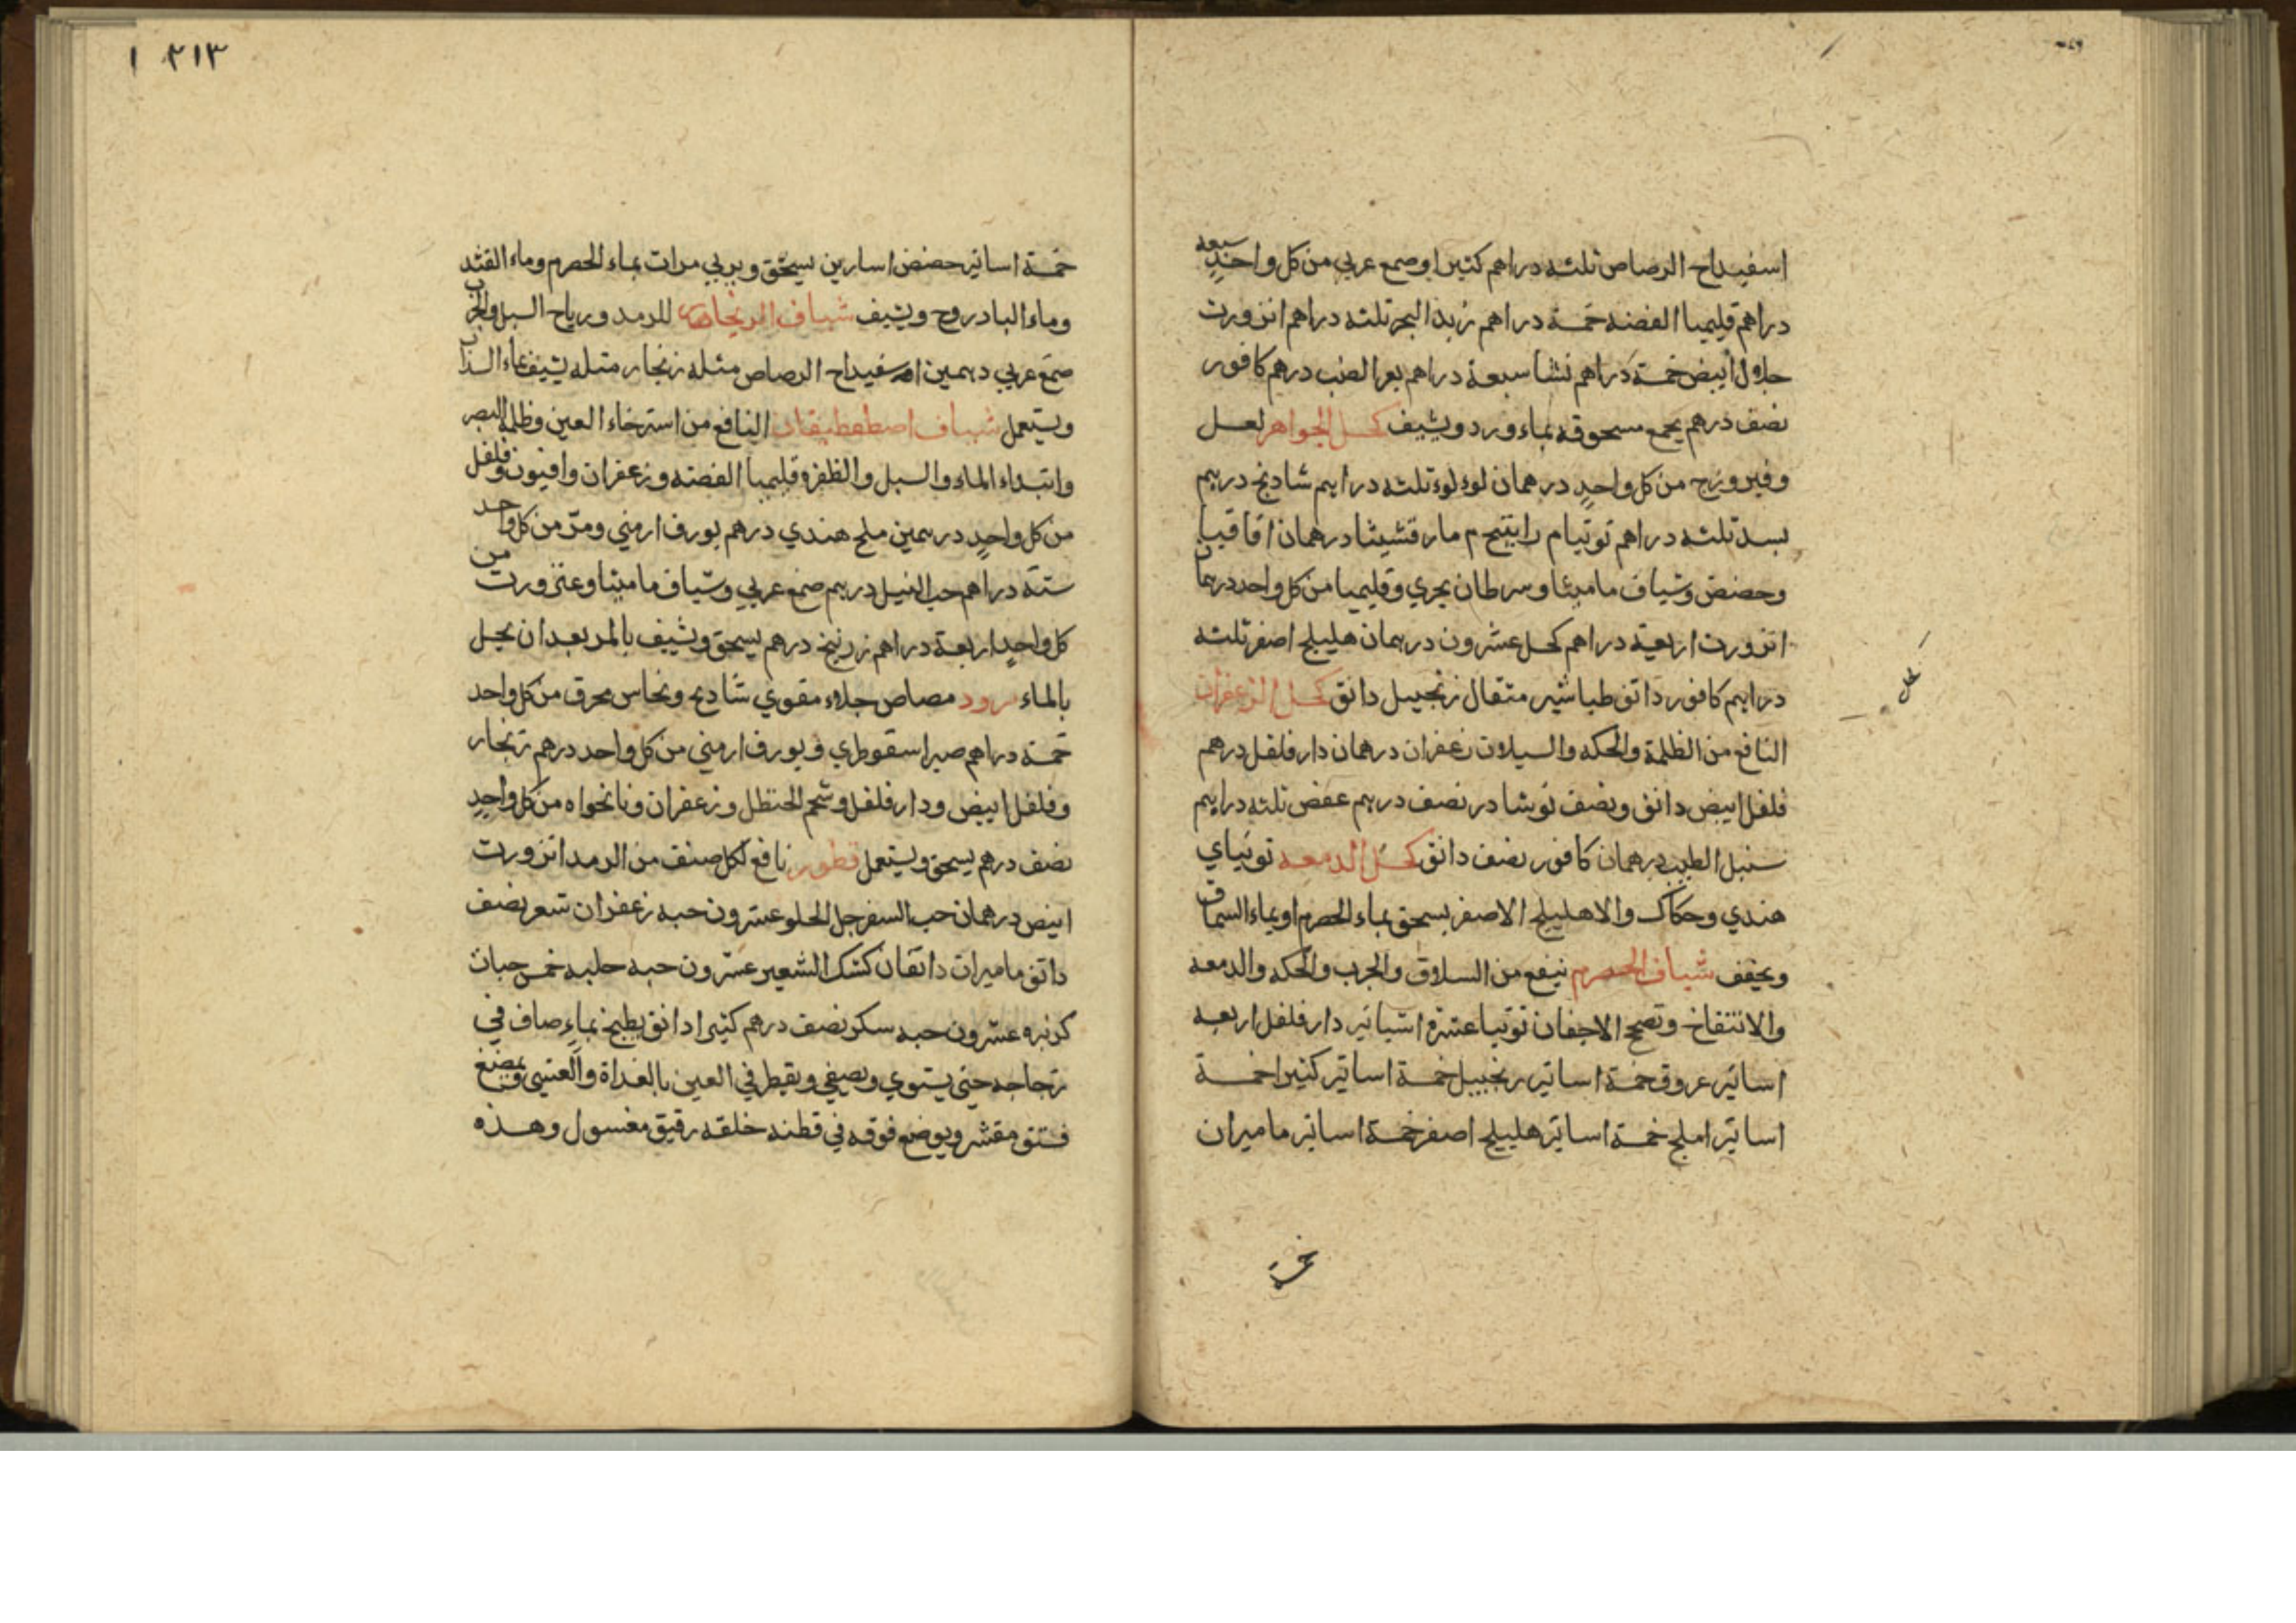 اسفيداح الرصاص ثلثه دراهم كثيرا وصمع عربي من كل واحدٍ سبعه
دراهم قليميا الفضه خمسة دراهم زبد البحر ثلثه دراهم انزورت
حلال ابيض خمسة دراهم نشا سبعة دراهم بعر الضب درهم كافور
نصف درهم يجمع مسحوقه بماء ورد ويشيف كحل الجواهر لعل
وفيروزج من كل واحدٍ درهمان لوء لوء ثلثه دراهم شادنج درهم
بسد ثلثه دراهم توتيا م مارقشيشا درهمان اقاقيا
وحضض وشياف ماميثا وسرطان بحري وقليميا من كل واحد درهمان
انزورت اربعة دراهم كحل عشرون درهمان هليلج اصفر ثلثه
دراهم كافور دانق طباشير مثقال زنجبيل دانق كحل الزعفران
النافع من الظلمة والحكه والسيلان زعفران درهمان دارفلفل درهم
فلفل ابيض دانق ونصف نوشادر نصف درهم عفص ثلثه دراهم
سنبل الطيب درهمان كافور نصف دانق كحل الدمعه توتياي
هندي وحكاك والاهليلج الاصفر يسحق بماء الحصرم او بماء السماق
ويجفف شياف الحصرم ينفع من السلاق والجرب والحكه والدمعه
والانتفاخ وتصحح الاجفان توتيا عشرة اساتير دارفلفل اربعه
اساتير عروق خمسة اساتير زنجبيل خمسة اساتير كثيرا خمسة
اساتير املج خمسة اساتير هليلج اصفر خمسة اساتير ماميران
خمسة
٣١٣ ١
خمسة اساتير حضض اسارين يسحق ويربي مرات بماء الحصرم وماء القثد
وماء البادروج ويشيف شياف للرمد ورياح السبل والجرب
صمغ عربي درهمين اسفيداح الرصاص مثله زنجار مثله يشيف بماء السذاب
ويستعمل شياف اصطفطيقان النافع من استرخاء العين وظلمة البصر
وابتداء الماء والسبل والظفره قليميا الفضه وزعفران وافيون وفلفل
من كل واحدٍ درهمين ملح هندي درهم بورق ارمني ومرّ من كل واحد
ستة دراهم حب النيل درهم صمغ عربي وشياف ماميثا وعنزورت من
كل واحدٍ اربعة دراهم زرنيخ درهم يسحق ويشيف بالمر بعد ان يحل
بالماء برود مصاص جلاء مقوي شادنج ونحاس محرق من كل واحد
خمسة دراهم صبر اسقوطري وبورق ارمني من كل واحد درهم زنجار
وفلفل ابيض ودارفلفل وشحم الحنظل وزعفران ونانخواه من كل واحدٍ
نصف درهم يسحق ويستعمل قطور نافع لكل صنف من الرمد انزورت
ابيض درهمان حب السفرجل الحلو عشرون حبه زعفران شعر نصف
دانق ماميران دانقان كشك الشعير عشرون حبه حلبه خمس حبات
كزبره عشرون حبه سكر نصف درهم كثيرا دانق يطبخ بماءٍ صاف في
زجاجه حتى يستوي ويصفي ويقطر في العين بالغداة والعشي ويمضغ
فستق مقشر ويوضع فوقه في قطنه خلقه رقيق مغسول وهذه